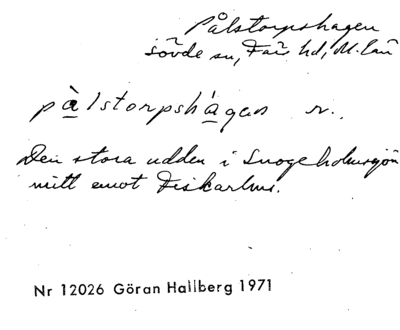 Pålstorpshagen
Sövde sn, Färs hd, M. län
pàlstorpshágen n.
Den stora udden i Snogeholmssjön
mitt emot Fiskarhus.
Nr 12026 Göran Hallberg 1971